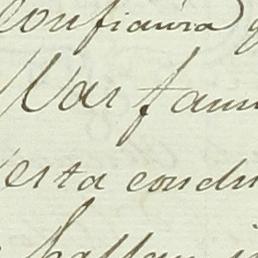 confianza
Las fam
esta condu
hallan